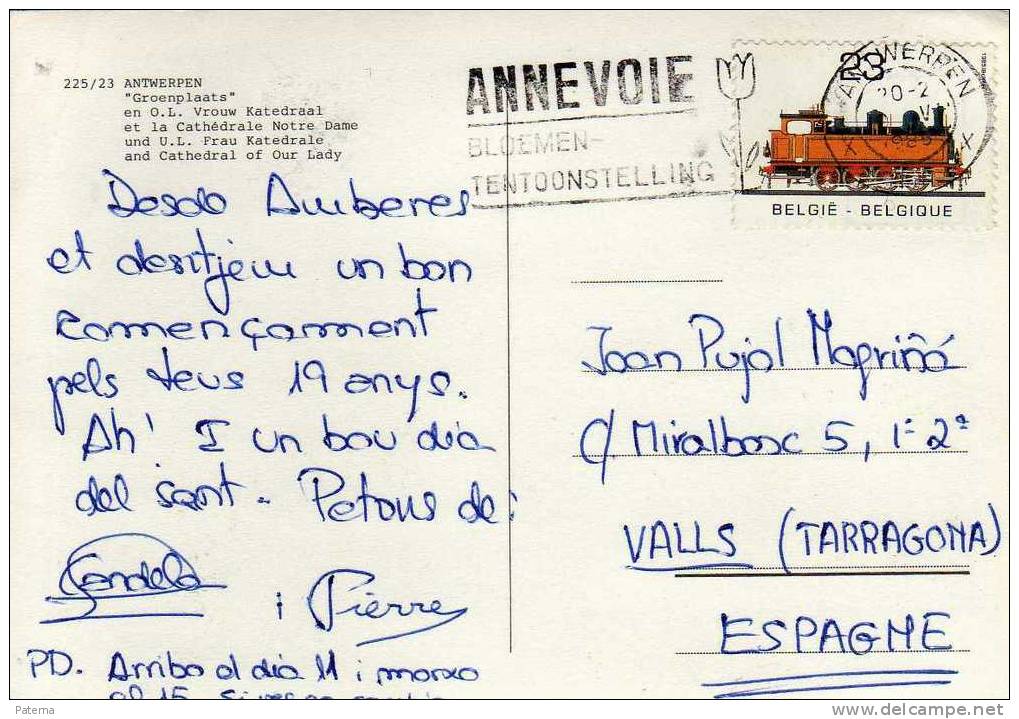 225/23 ANTWERPEN
"Groenplaats"
en O.L. Vrouw Katedraal
et la Cathédrale Notre Dame
und U.L. Frau Katedrale
and Cathedral of Our Lady
ANNEVOIE
BLOEMEN-
TENTOONSTELLING
23
ANTWERPEN
20-2
1985
X X
BELGIË - BELGIQUE
Desde Amberes
et desitjem un bon
començament
pels teus 19 anys.
Ah! I un bon dia
del sant. Petons de:
Candela
i Pierre
PD. Arribo el dia 11 i marxo
el 15.
Joan Pujol Magriñá
c/ Miralbosc 5, 1º 2ª
VALLS (TARRAGONA)
ESPAGNE
Paterna
delcampe.net